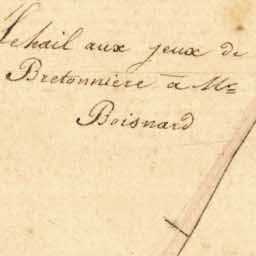 Lehail aux jeux de
Bretonniere a Mr
Boisnard